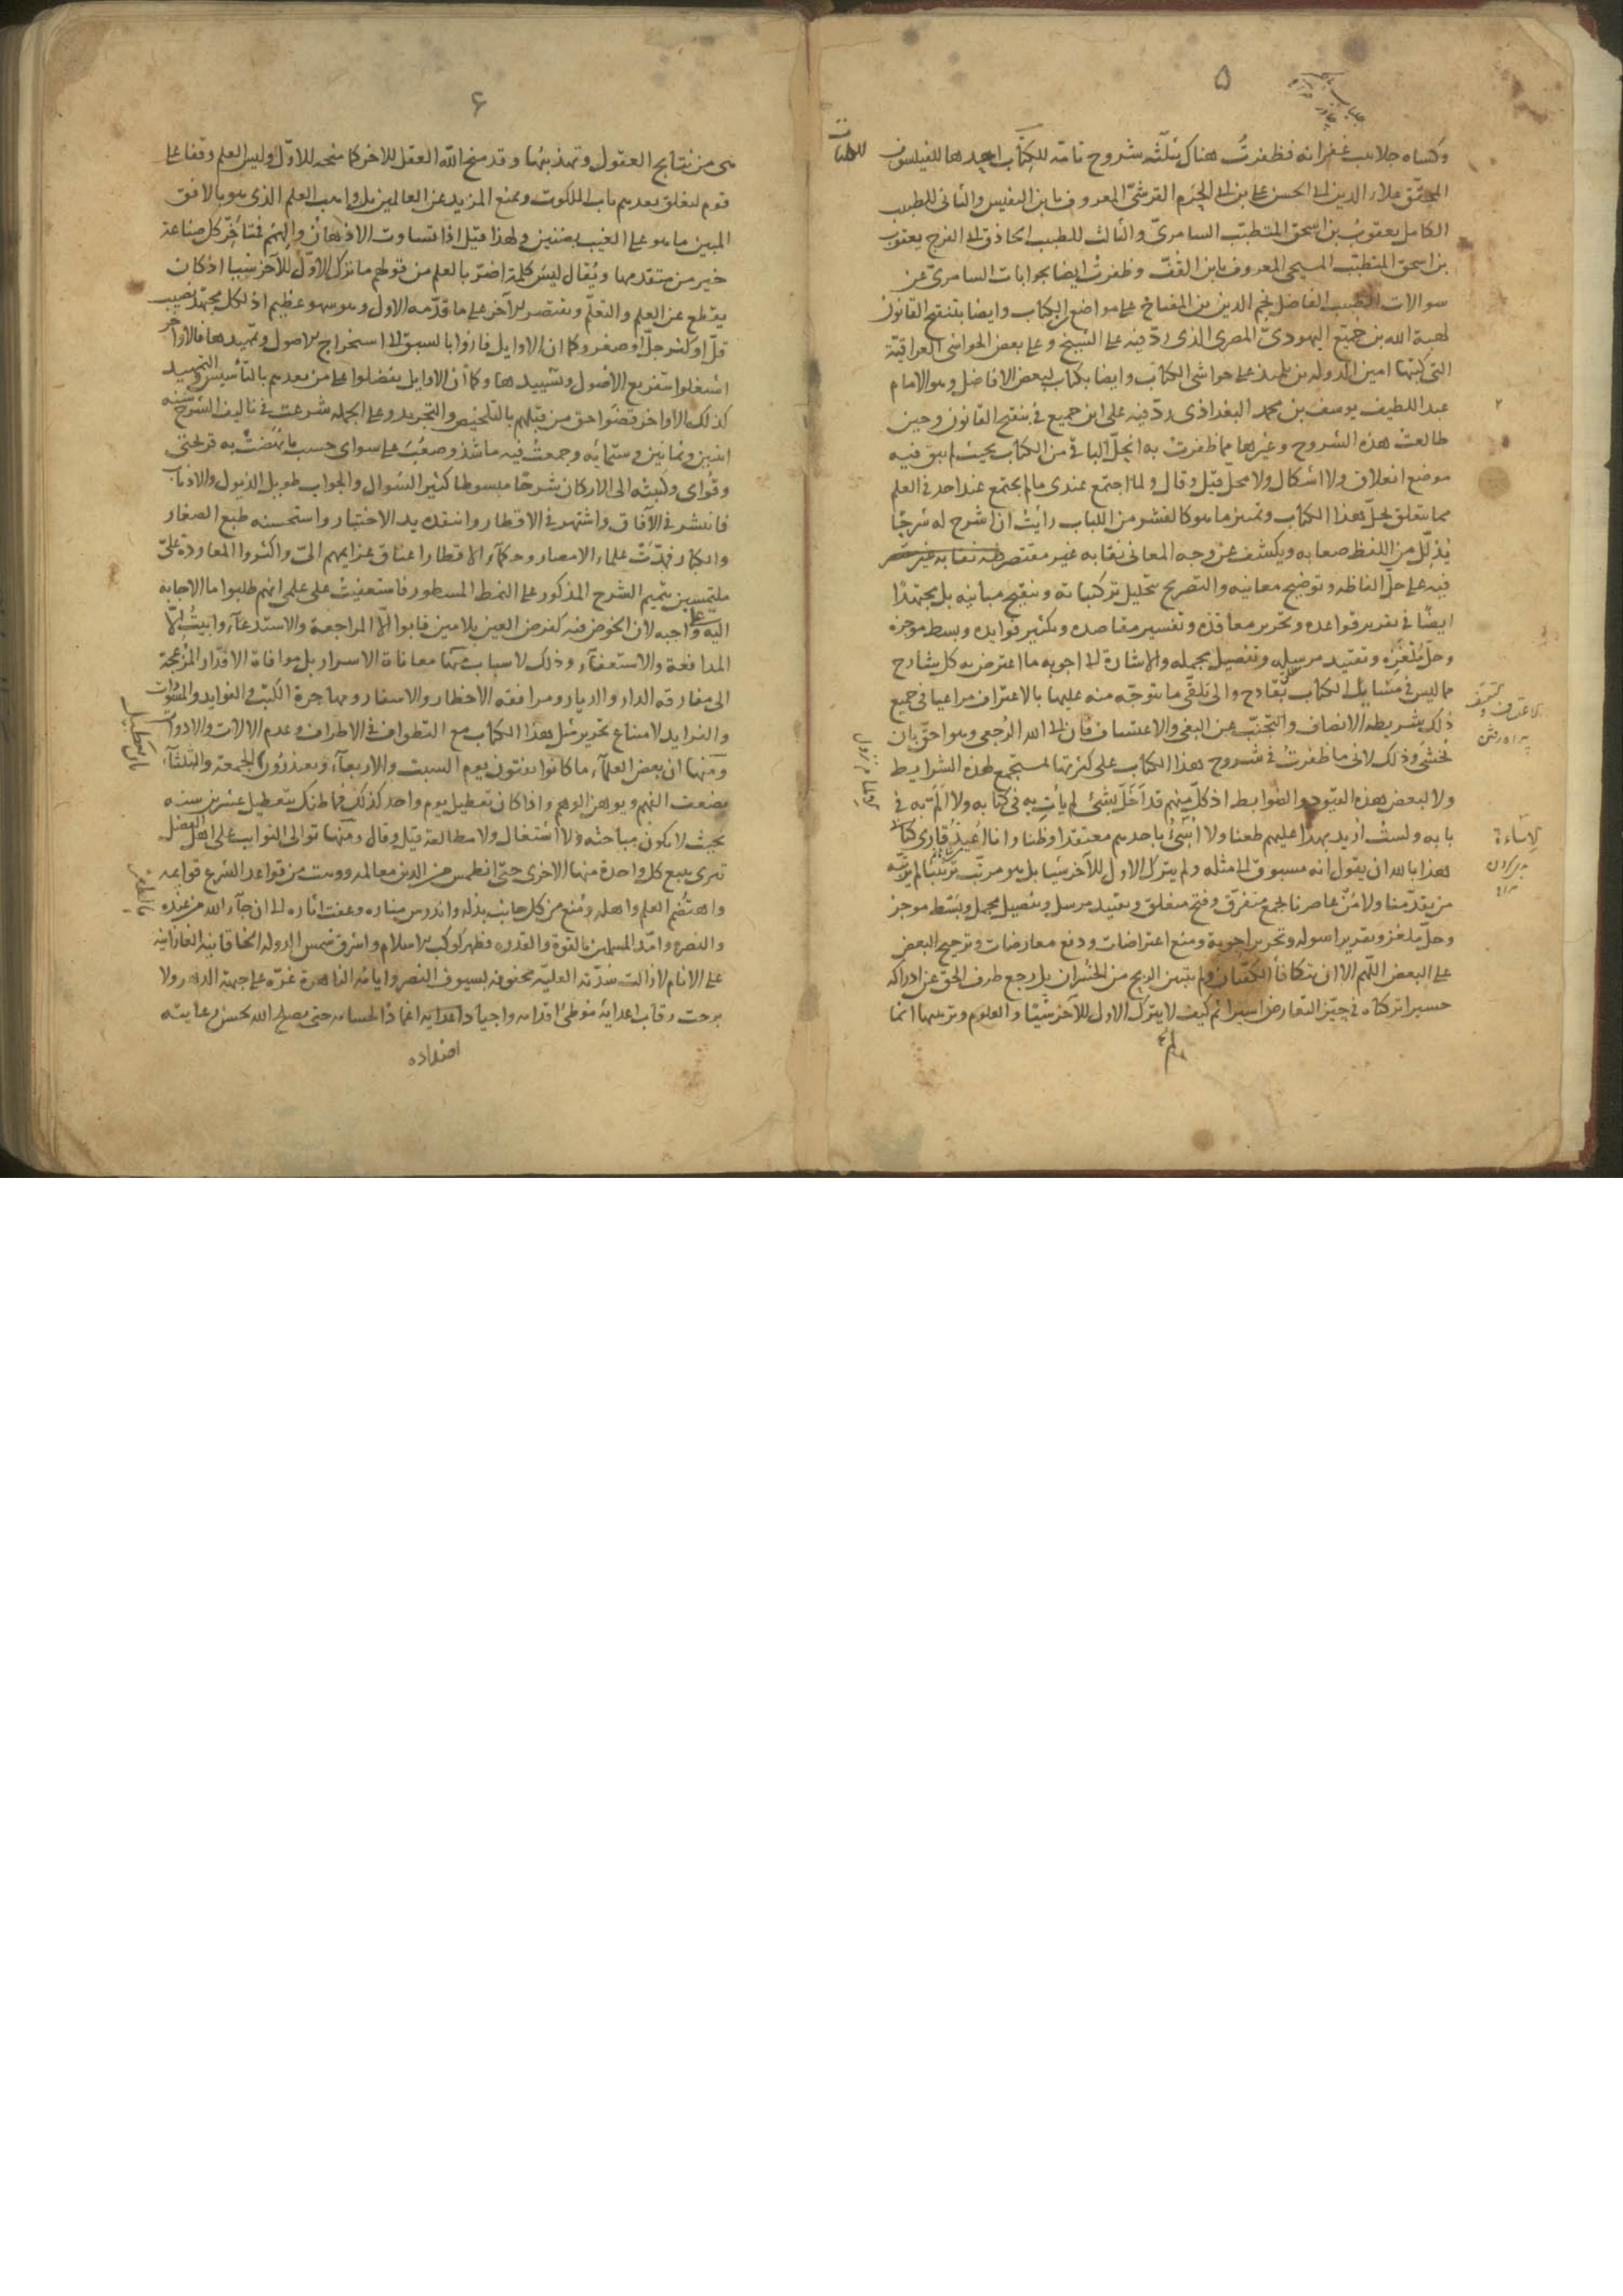 ۵
وكساه جلابيب غفرانه فظفرتُ هناك بثلثه شروح تامّه للكتاب احدها للفيلسوف
المحقّق علاء الدين ابى الحسن على بن ابى الحزم القرشىّ المعروف بابن النفيس والثانى للطبيب
الكامل يعقوب بن اسحق المتطبّب السامرىّ والثالث للطبيب الحاذق ابى الفرج يعقوب
بن اسحق المتطبّب المسيحى المعروف بابن القفّ وظفرتُ ايضا بجوابات السامرىّ عن
سوالات الطبيب الفاضل نجم الدين بن المفتاح على مواضع من الكتاب وايضا بتنقيح القانون
لهبة الله بن جميع اليهودىّ المصرى الذى ردّ فيه على الشيخ وعلى بعض الحواشى العراقيّة
التى كتبها امين الدوله بن تلميذ على حواشى الكتاب وايضا بكتاب لبعض الافاضل وهو الامام
عبد اللطيف يوسف بن محمد البغداذى ردّ فيه على ابن جميع فى تنقيح القانون وحين
طالعت هذه الشروح وغيرها مما ظفرت به انحلّ الباقى من الكتاب بحيث لم يبق فيه
موضع انغلاق ولا اشكال ولا محلّ قيل وقال ولما اجتمع عندى مالم يجتمع عند احد فى العلم
مما يتعلق بحلّ هذا الكتاب وتميّز ما هو كالقشر من اللباب رايتُ ان اشرح له شرحًا
يُذلّل من اللفظ صعابه ويكشف عن وجه المعانى نقابه غير مقتصر
فيه على حلّ الفاظه وتوضيح معانيه والتصريح بتحليل تركيباته وتنقيح مبانيه بل مجتهدًا
ايضًا فى تقرير قواعده وتحرير معاقده وتفسير مقاصده وتكثير فوايده وبسط موجزه
وحلّ مُلغزه وتقييد مرسله وتفصيل مجمله والاشارة الى اجوبه ما اعترض به كل شارح
مما ليس فى مسايل الكتاب بقادح والى تلقّى ما يتوجّه منه عليها بالاعتراف مراعيا فى جميع
ذلك بشريطة الانصاف والتجنّب عن البغى والاعتساف فان الى الله الرُجعى وهو احقّ بان
يُخشى وذلك لانى ما ظفرتُ فى شروح هذا الكتاب على كثرتها لمستجمع لهذه الشرايط
ولا لبعض هذه القيود والضوابط اذ كلّ منهم قد اخلّ بشئ لم يأت به فى كتابه ولا المّ به فى
بابه ولستُ اريد بهذا عليهم طعنا ولا اسئُ باحدهم معتقدا وظنا وانا اُعيذ قارى كتابى
هذا بالله ان يقول انه مسبوق الى مثله ولم يترك الاول للآخر شيا بل هو مرتّب ترتيبًا لم يرتّبه
من يقدّمنا ولا مَن عاصرنا لجمع متفرّق وفتح منغلق وتقييد مرسل وتفصيل مجمل وبسط موجز
وحلّ ملغز وتقرير اسوله وتحرير اجوبة ومنع اعتراضات ودفع معارضات وترجيح البعض
على البعض اللّهم الا ان تتكافأ الكفّتان ولم يتبيّن الربح من الخُسران بل رجع طرف الحقّ عن ادراكه
حسيرا تركناه فى حيّز التعارض اسيرا ثم كيف لا يترك الاول للآخر شيئا والعلوم وترتيبها انما
۶
هى من نتايج العقول وتهذيبها وقد منح الله العقل للاخر كما منحه للاوّل وليس العلم وقفا على
قوم ليغلق بعدهم باب الملكوت ويمنع المزيد عن العالمين بل واهب العلم الذى هو بالافق
المبين ما هو على الغيب بضنين ولهذا قيل اذا تساوت الاذهان والهمم فمتأخّر كل صناعة
خير من متقدمها ويُقال ليس كلمة اضرّ بالعلم من قولهم ما ترك الاوّل للآخر شيا اذ كان
يقطع عن العلم والتعلّم ويقتصر الآخر على ما قدّمه الاول وهو سهو عظيم اذ لكل مجتهد نصيب
قلّ او كثر جلّ او صغر وكما ان الاوايل فازوا بالسبق الى استخراج الاصول وتمهيدها فالاواخر
اشتغلوا بتفريع الاصول وتشييدها وكما ان الاوايل تفضلوا على من بعدهم بالتأسيس والتمهيد
كذلك الاواخر قضوا حق من قبلهم بالتلخيص والتجريد وعلى الجمله شرعت فى تاليف الشرح سنه
اثنين وثمانين وستمائه وجمعتُ فيه ما شذ وصعُب على سواى حسب ما نهضتْ به قريحتى
وقُواى وكتبته الى الاركان شرحًا مبسوطا كثير السّوال والجواب طويل الذيول والاذناب
فانتشر فى الآفاق واشتهر فى الاقطار وانتقدته يد الاختبار واستحسنه طبع الصغار
والكبار فمدّت علماء الامصار وحكمآء الاقطار اعناق عزايمهم الىّ واكثروا المعاودة علىّ
ملتمسين تتميم الشرح المذكور على النمط المسطور فاستعفيتُ على علمى انهم طلبوا ما الاجابه
اليه علىّ واجبه لان الخوض فيه كفرض العين بلا مين فابوا الّا المراجعة والاستدعآء وابيتُ الّا
المدافعة والاستعفآء وذلك لاسباب منها معاناة الاسرار بل موافاة الاقدار المُزعجة
الى مفارقه الدار والديار ومرافقه الاخطار والاسفار ومهاجرة الكتب والفوايد والمسوّدات
والفرايد لامتناع تحرير مثل هذا الكتاب مع التطواف فى الاطراف وعدم الالات والادوات
ومنها ان بعض العلمآء ما كانوا يفتون يوم السبت والاربعآء ويعتذرون بالجمعة والثلثآء
يضعف الفهم ويوهن الوهم واذا كان تعطيل يوم واحد كذلك فما ظنك بتعطيل عشرين سنه
بحيث لا يكون مباحثه ولا اشتغال ولا مطالعة قيل وقال ومنها توالى النوايب على اهل الفضل
تترى يتبع كل واحدة منها الاخرى حتى انطمس من الدين معالمه ووهت من قواعد الشرع قوايمه
واهتُضم العلم واهله ومُنع من كل جانب بذله واندرس مناره وعفت اثاره الى ان جآء الله من عنده
والنصره وامّد المسلمين بالقوة والقدره فظهر كوكب الاسلام واشرق شمس الدوله الخاقانية الغازانيه
على الانام لا زالت سُدّته العليّه محفوفه بسيوف النصر وايامه الزاهرة غرّه على جبهة الدهر ولا
برحت رقاب اعدايه مُوطئ اقدامه واجياد اعدايه اغماد الحسامه حتى يصلح الله بحسن رعايته
اضداده